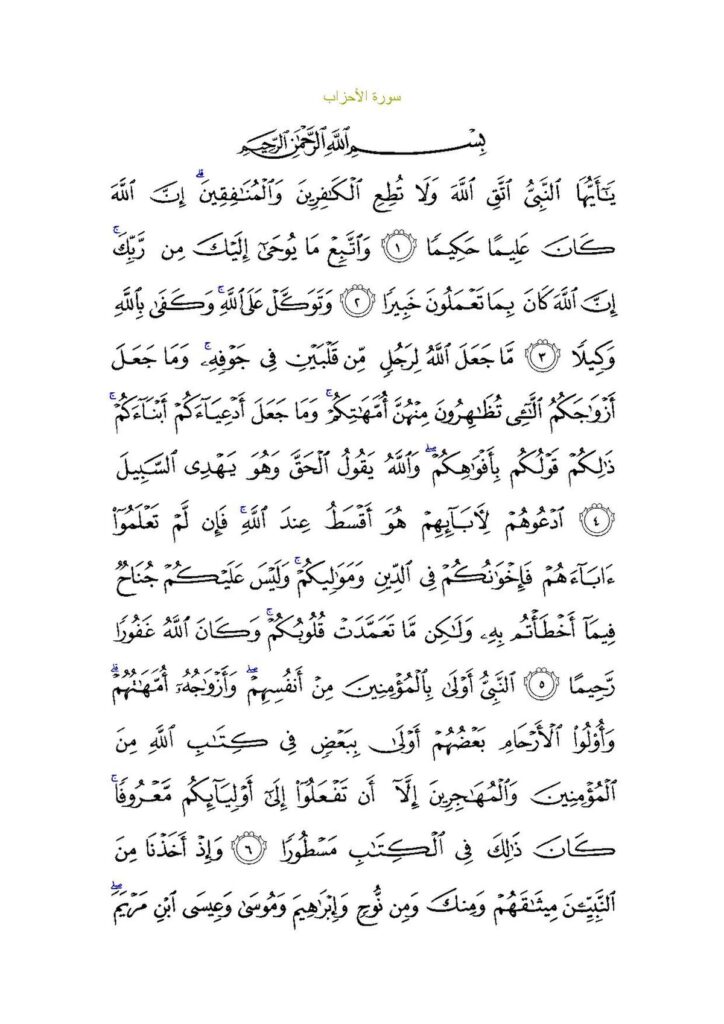 سورة الأحزاب
بِسْمِ اللَّهِ الرَّحْمَٰنِ الرَّحِيمِ
يَٰٓأَيُّهَا ٱلنَّبِيُّ ٱتَّقِ ٱللَّهَ وَلَا تُطِعِ ٱلْكَٰفِرِينَ وَٱلْمُنَٰفِقِينَۗ إِنَّ ٱللَّهَ
كَانَ عَلِيمًا حَكِيمًا ١ وَٱتَّبِعْ مَا يُوحَىٰٓ إِلَيْكَ مِن رَّبِّكَۚ
إِنَّ ٱللَّهَ كَانَ بِمَا تَعْمَلُونَ خَبِيرًا ٢ وَتَوَكَّلْ عَلَى ٱللَّهِۚ وَكَفَىٰ بِٱللَّهِ
وَكِيلًا ٣ مَّا جَعَلَ ٱللَّهُ لِرَجُلٍ مِّن قَلْبَيْنِ فِي جَوْفِهِۦۚ وَمَا جَعَلَ
أَزْوَٰجَكُمُ ٱلَّٰٓـِٔي تُظَٰهِرُونَ مِنْهُنَّ أُمَّهَٰتِكُمْۚ وَمَا جَعَلَ أَدْعِيَآءَكُمْ أَبْنَآءَكُمْۚ
ذَٰلِكُمْ قَوْلُكُم بِأَفْوَٰهِكُمْۖ وَٱللَّهُ يَقُولُ ٱلْحَقَّ وَهُوَ يَهْدِي ٱلسَّبِيلَ
٤ ٱدْعُوهُمْ لِأٓبَآئِهِمْ هُوَ أَقْسَطُ عِندَ ٱللَّهِۚ فَإِن لَّمْ تَعْلَمُوٓا۟
ءَابَآءَهُمْ فَإِخْوَٰنُكُمْ فِي ٱلدِّينِ وَمَوَٰلِيكُمْۚ وَلَيْسَ عَلَيْكُمْ جُنَاحٌ
فِيمَآ أَخْطَأْتُم بِهِۦ وَلَٰكِن مَّا تَعَمَّدَتْ قُلُوبُكُمْۚ وَكَانَ ٱللَّهُ غَفُورًا
رَّحِيمًا ٥ ٱلنَّبِيُّ أَوْلَىٰ بِٱلْمُؤْمِنِينَ مِنْ أَنفُسِهِمْۖ وَأَزْوَٰجُهُۥٓ أُمَّهَٰتُهُمْۗ
وَأُو۟لُوا۟ ٱلْأَرْحَامِ بَعْضُهُمْ أَوْلَىٰ بِبَعْضٍ فِي كِتَٰبِ ٱللَّهِ مِنَ
ٱلْمُؤْمِنِينَ وَٱلْمُهَٰجِرِينَ إِلَّآ أَن تَفْعَلُوٓا۟ إِلَىٰٓ أَوْلِيَآئِكُم مَّعْرُوفًاۚ
كَانَ ذَٰلِكَ فِي ٱلْكِتَٰبِ مَسْطُورًا ٦ وَإِذْ أَخَذْنَا مِنَ
ٱلنَّبِيِّـۧنَ مِيثَٰقَهُمْ وَمِنكَ وَمِن نُّوحٍ وَإِبْرَٰهِيمَ وَمُوسَىٰ وَعِيسَى ٱبْنِ مَرْيَمَۖ